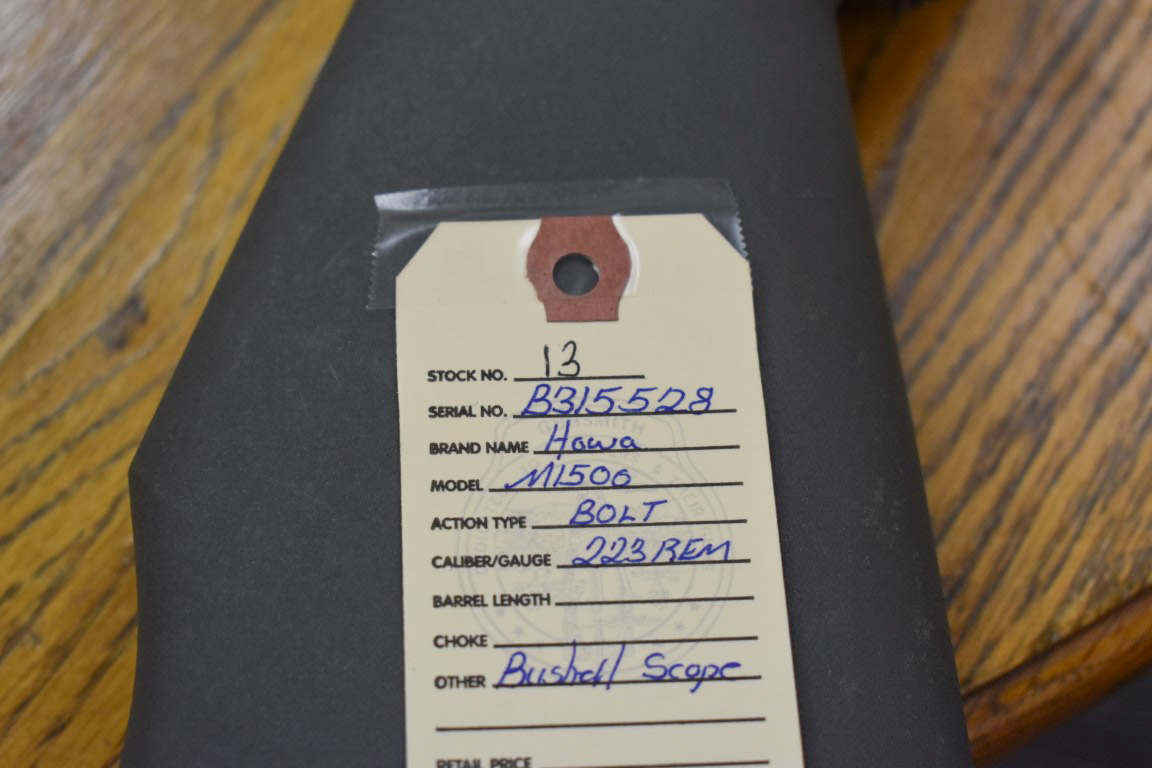 STOCK NO. 13
SERIAL NO. B315528
BRAND NAME Howa
MODEL M1500
ACTION TYPE BOLT
CALIBER/GAUGE 223 REM
BARREL LENGTH
CHOKE
OTHER Bushell Scope
RETAIL PRICE